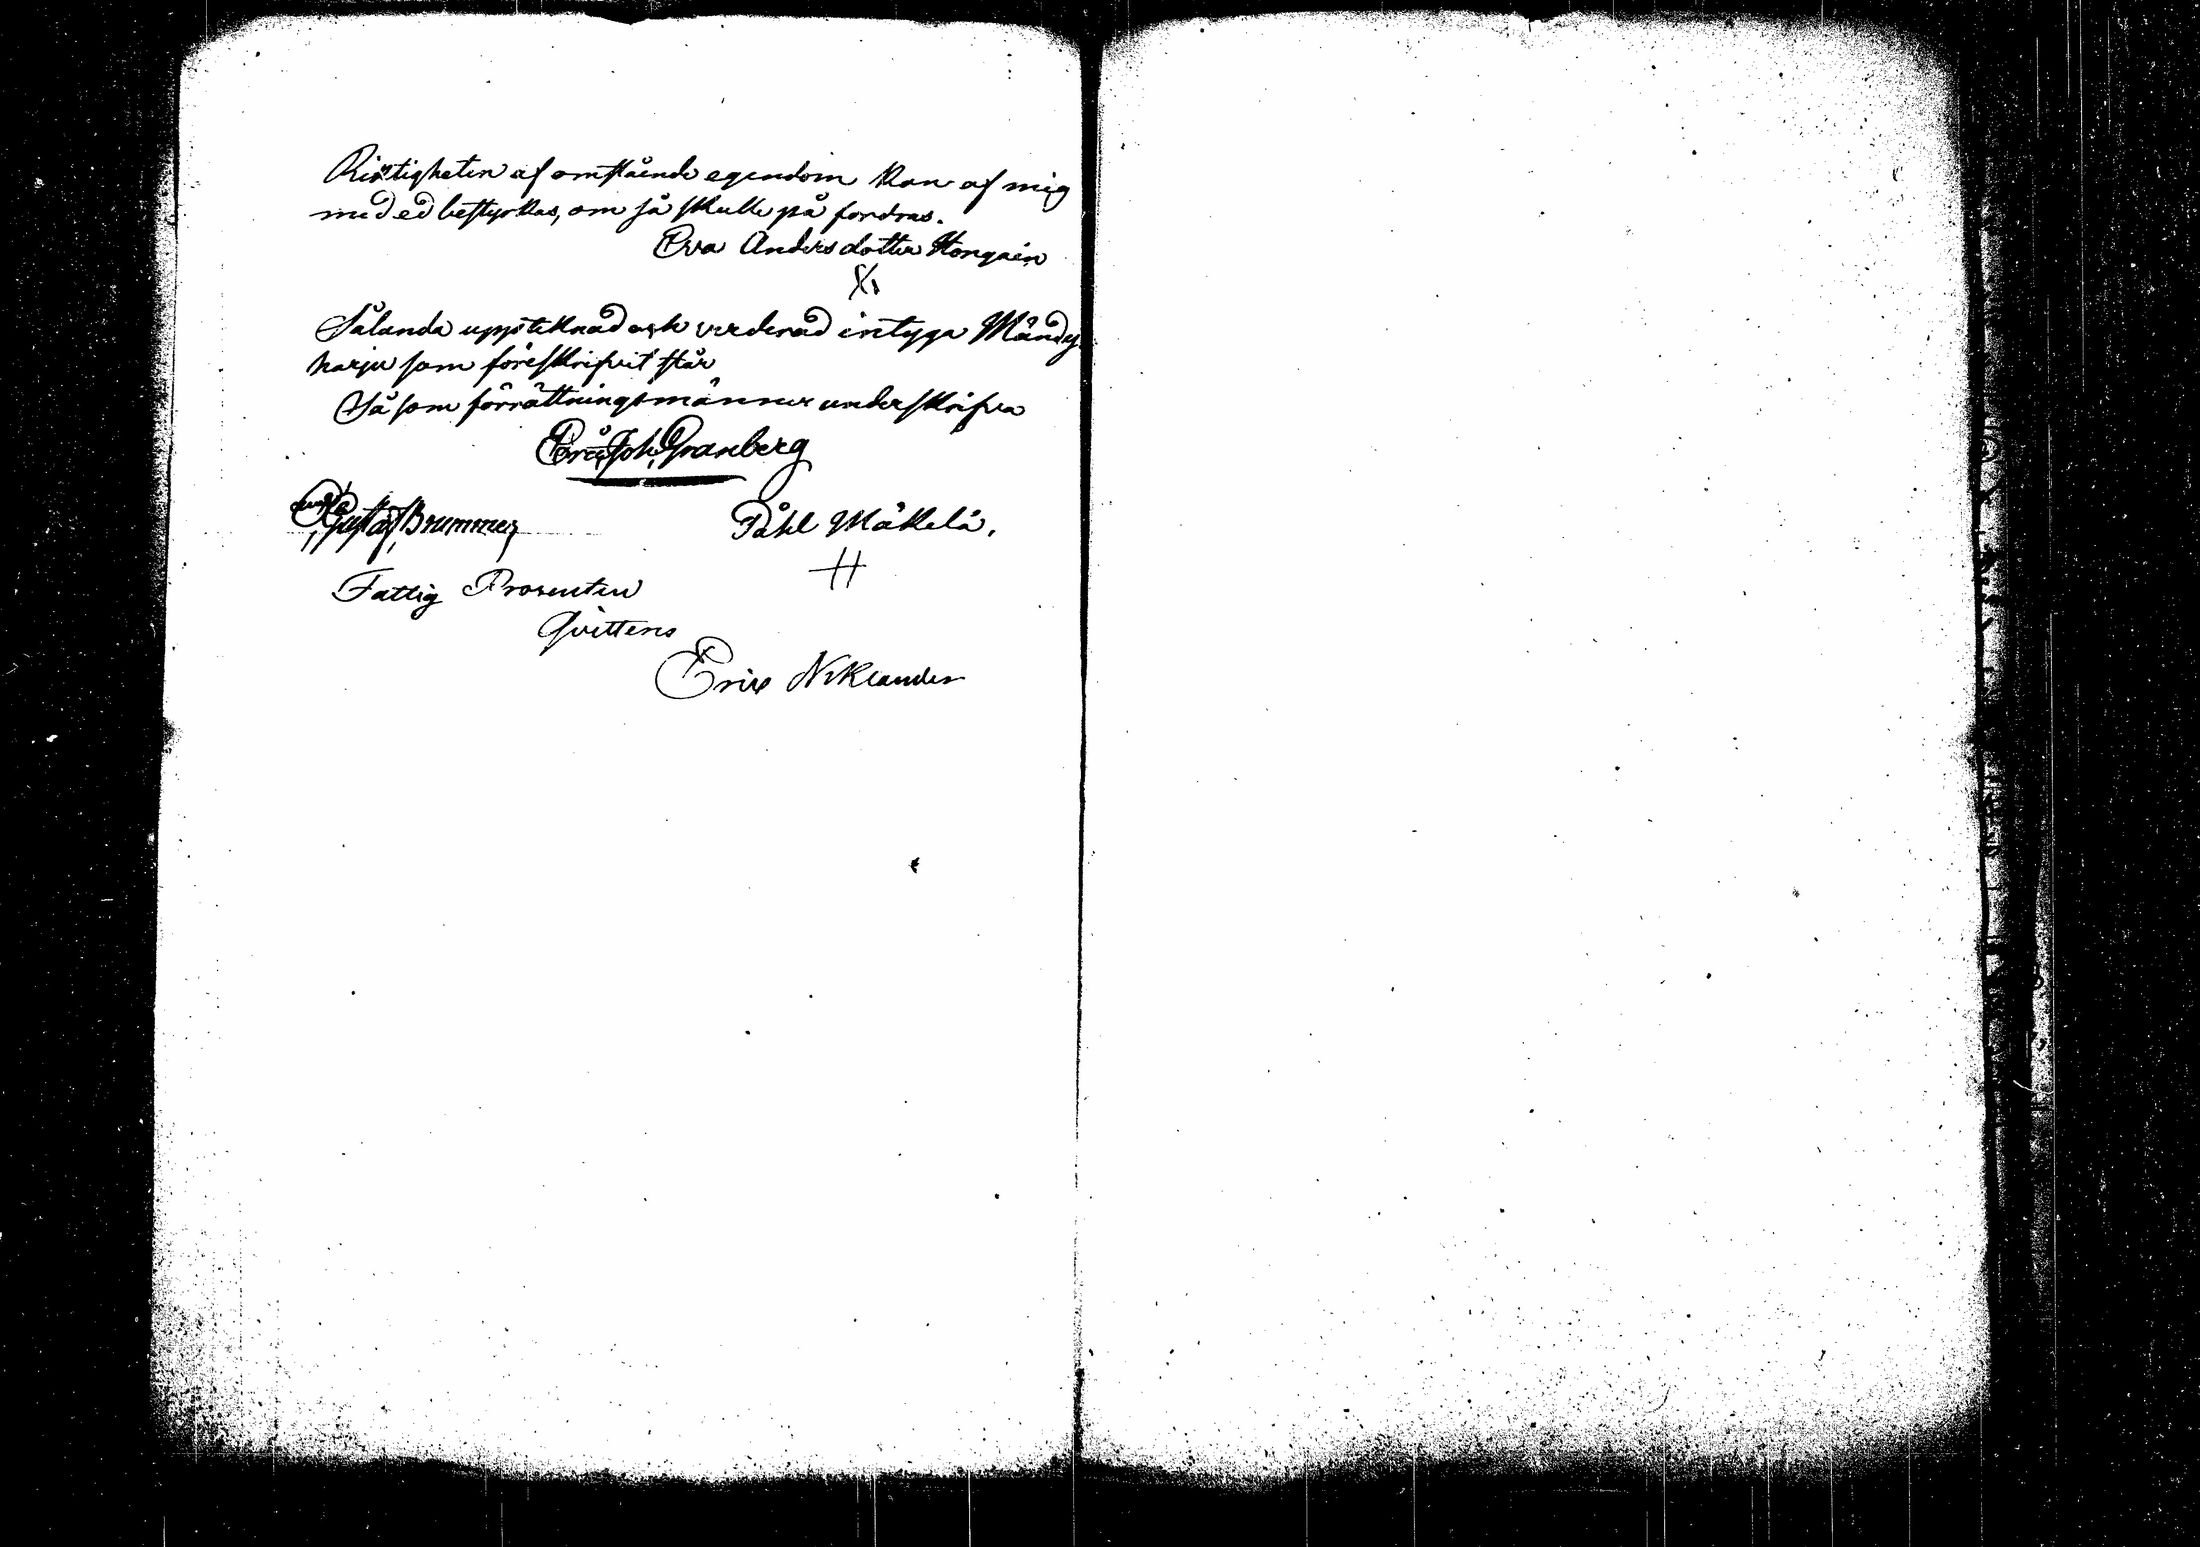 Riktigheten af omstående egendom kan af mig
med ed bestyrkas, om så skulle på fordras.
Eva Andersdotter Hongain
Sålunda uppteknad och verderad intyga Mändy
harju som föreskrifvit står
Så som förrättningsmänner underskrifva
Joh. Granberg
Gustaf Brummer
Påhl Mäkelä.
Fattig Prosenten
Qvitteras
Eric Niklander